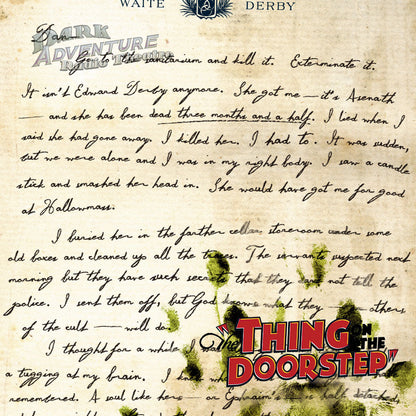 WAITE DERBY
Dan—
DARK
ADVENTURE
Radio Theatre
Go to the sanitarium and kill it. Exterminate it.
It isn't Edward Derby anymore. She got me — it's Asenath
— and she has been dead three months and a half. I lied when I
said she had gone away. I killed her. I had to. It was sudden,
but we were alone and I was in my right body. I saw a candle
stick and smashed her head in. She would have got me for good
at Hallowmass.
I buried her in the farther cellar storeroom under some
old boxes and cleaned up all the traces. The servants suspected next
morning but they have such secrets that they dare not tell the
police. I sent them off, but God knows what they — others
of the cult — will do.
I thought for a while I was
a tugging at my brain. I knew what
remembered. A soul like hers — or Ephraim's — is half detached,
"The THING
ON
THE
DOORSTEP"